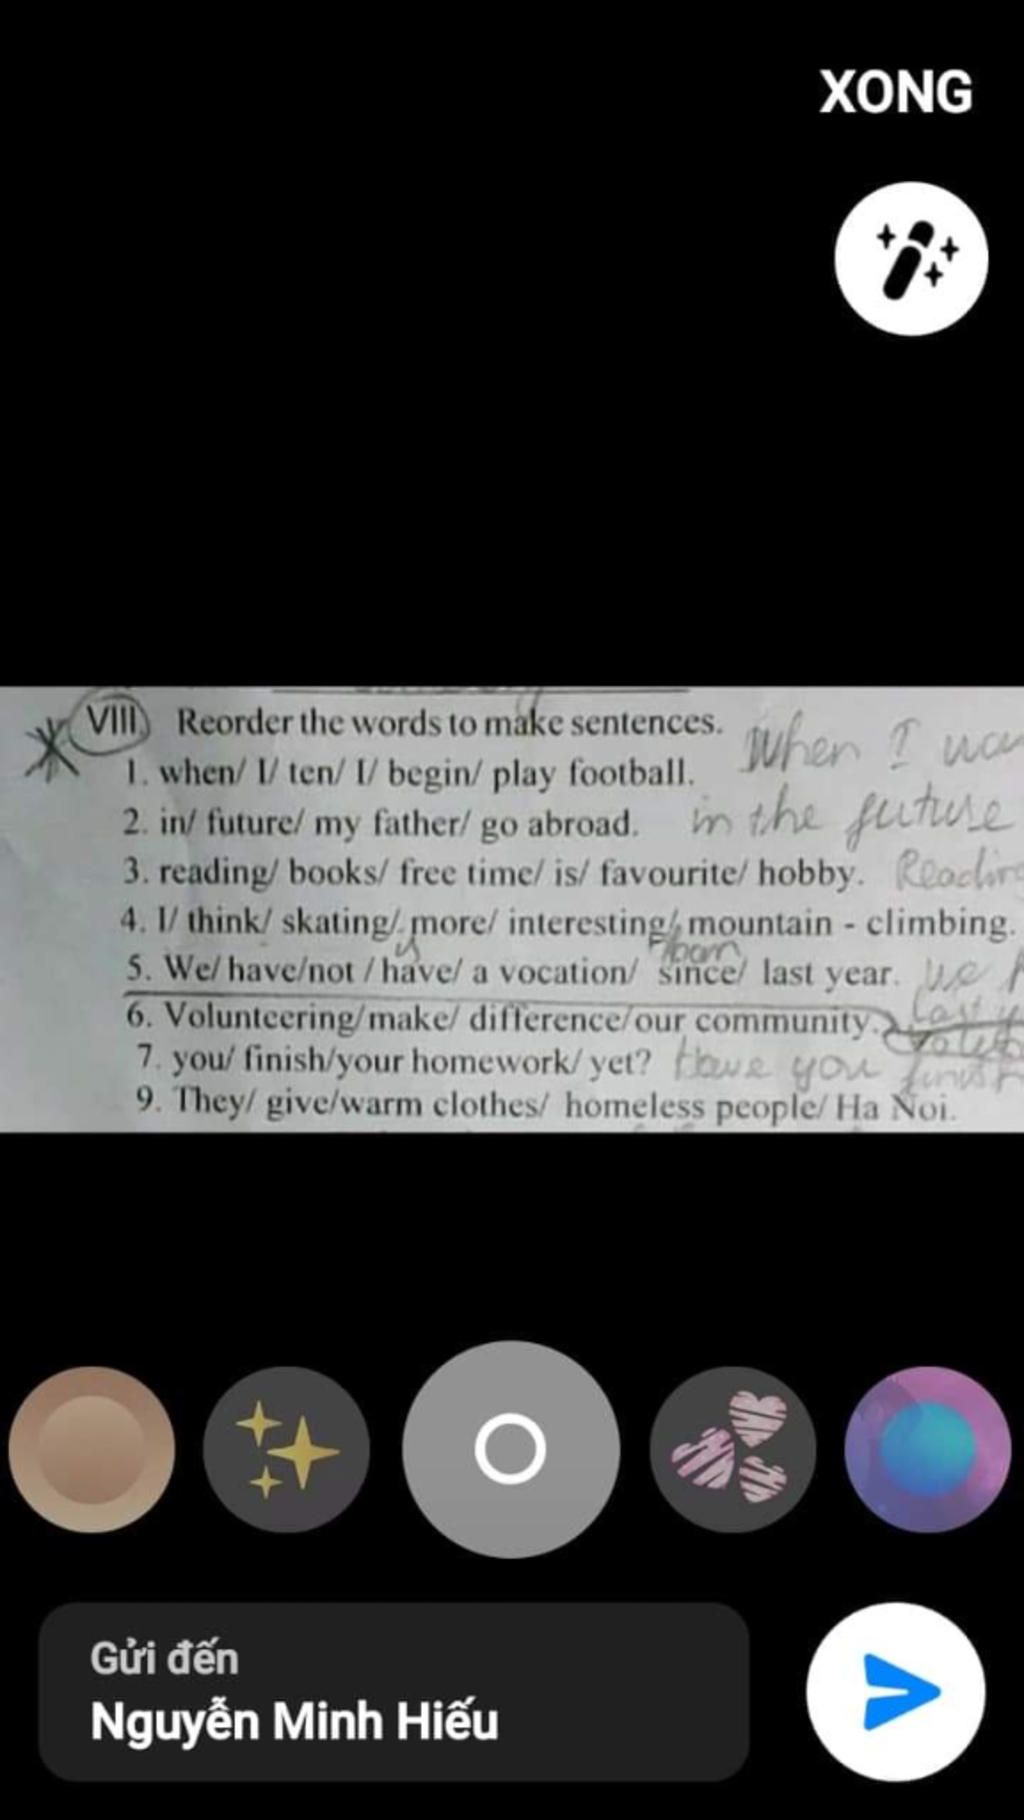 XONG
VIII. Reorder the words to make sentences.
When I
1. when/ I/ ten/ I/ begin/ play football.
2. in/ future/ my father/ go abroad. in the future
3. reading/ books/ free time/ is/ favourite/ hobby. Reading
4. I/ think/ skating/ more/ interesting/ mountain - climbing.
5. We/ have/not / have/ a vocation/ since/ last year. We
6. Volunteering/make/ difference/our community.
7. you/ finish/your homework/ yet? Have you finish
9. They/ give/warm clothes/ homeless people/ Ha Noi.
Gửi đến
Nguyễn Minh Hiếu